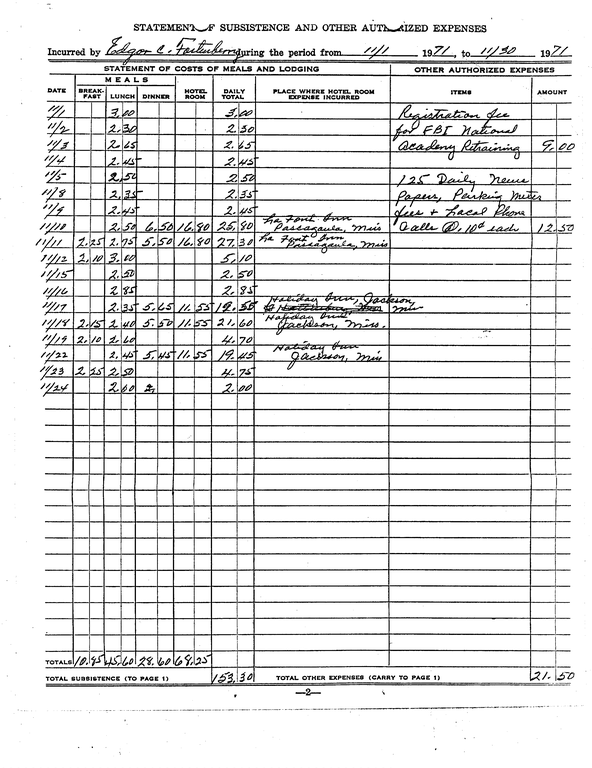 STATEMENT OF SUBSISTENCE AND OTHER AUTHORIZED EXPENSES
Incurred by Edgar C. Fortenberry during the period from 11/1 1971, to 11/30 1971
STATEMENT OF COSTS OF MEALS AND LODGING OTHER AUTHORIZED EXPENSES
MEALS
DATE BREAK-FAST LUNCH DINNER HOTEL ROOM DAILY TOTAL PLACE WHERE HOTEL ROOM EXPENSE INCURRED ITEMS AMOUNT
11/1 3.00 3.00 Registration fee
11/2 2.30 2.30 for FBI National
11/3 2.65 2.65 academy Retraining 9.00
11/4 2.45 2.45
11/5 2.50 2.50 125 Daily News
11/8 2.35 2.35 Papers, Parking Meter
11/9 2.45 2.45 fees + Local Phone
11/10 2.50 6.50 16.80 25.80 La Font Inn Pascagoula, Miss Calls @ .10¢ each 12.50
11/11 2.25 2.75 5.50 16.80 27.30 La Font Inn Pascagoula, Miss
11/12 2.10 3.00 5.10
11/15 2.50 2.50
11/16 2.85 2.85
11/17 2.35 5.65 11.55 19.55 Holiday Inn, Jackson, Miss
11/18 2.15 2.40 5.50 11.55 21.60 Holiday Inn Jackson, Miss.
11/19 2.10 2.60 4.70
11/22 2.45 5.45 11.55 19.45 Holiday Inn Jackson, Miss
11/23 2.25 2.50 4.75
11/24 2.00 2.00
TOTALS 10.85 45.60 28.60 68.25
TOTAL SUBSISTENCE (TO PAGE 1) 153.30 TOTAL OTHER EXPENSES (CARRY TO PAGE 1) 21.50
—2—